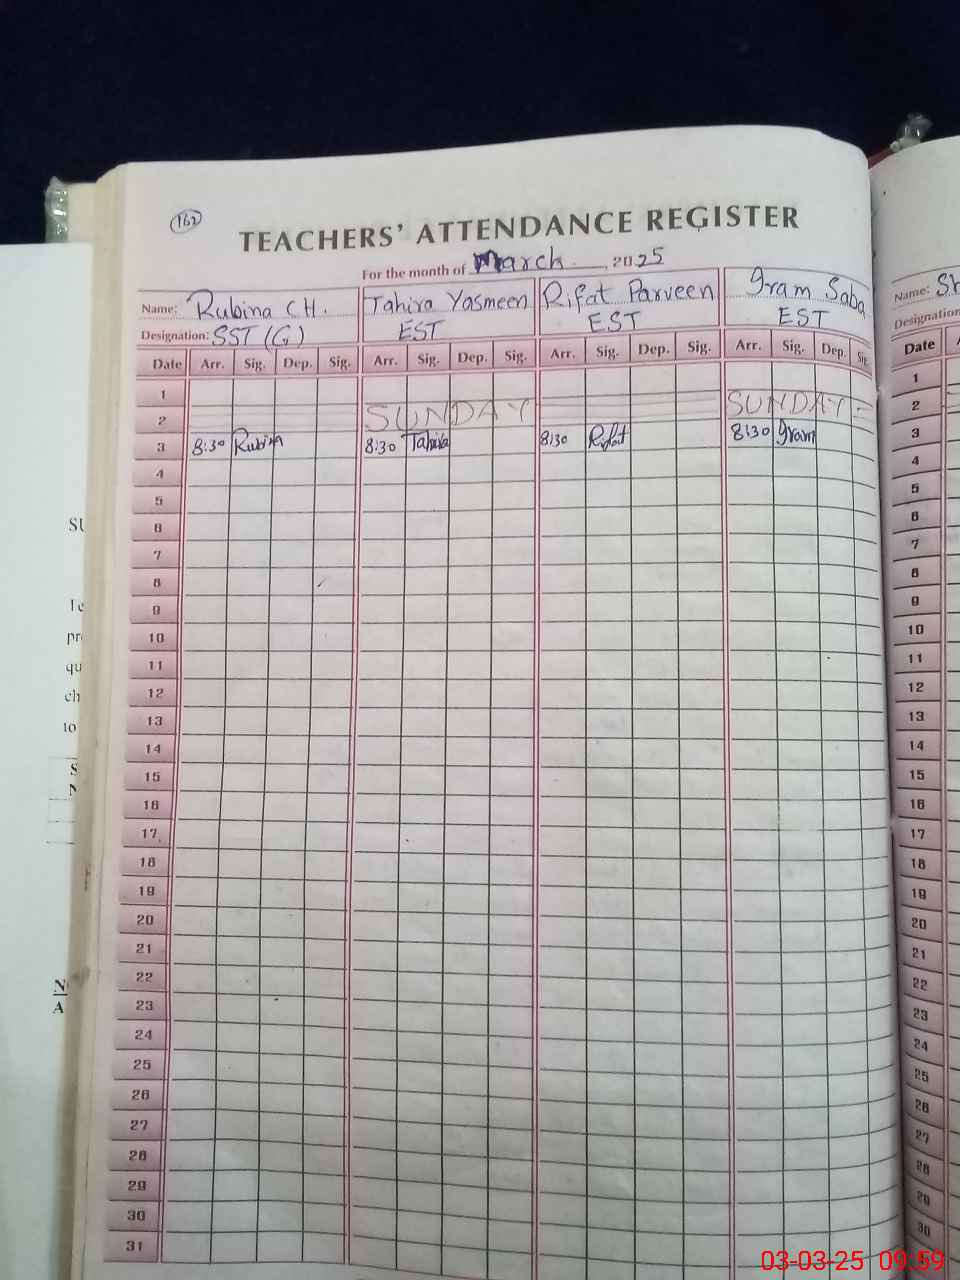 162
TEACHERS' ATTENDANCE REGISTER
For the month of March , 2025
Name: Rubina CH. Tahira Yasmeen Rifat Parveen Iram Saba
Designation: SST (G) EST EST EST
Date Arr. Sig. Dep. Sig. Arr. Sig. Dep. Sig. Arr. Sig. Dep. Sig. Arr. Sig. Dep. Sig.
1
2 SUNDAY SUNDAY
3 8:30 Rubina 8:30 Tahira 8:30 Rifat 8:30 Iram
4
5
6
7
8
9
10
11
12
13
14
15
16
17
18
19
20
21
22
23
24
25
26
27
28
29
30
31
Name: Sh
Designation
Date
1
2
3
4
5
6
7
8
9
10
11
12
13
14
15
16
17
18
19
20
21
22
23
24
25
26
27
28
29
30
03-03-25 09:59